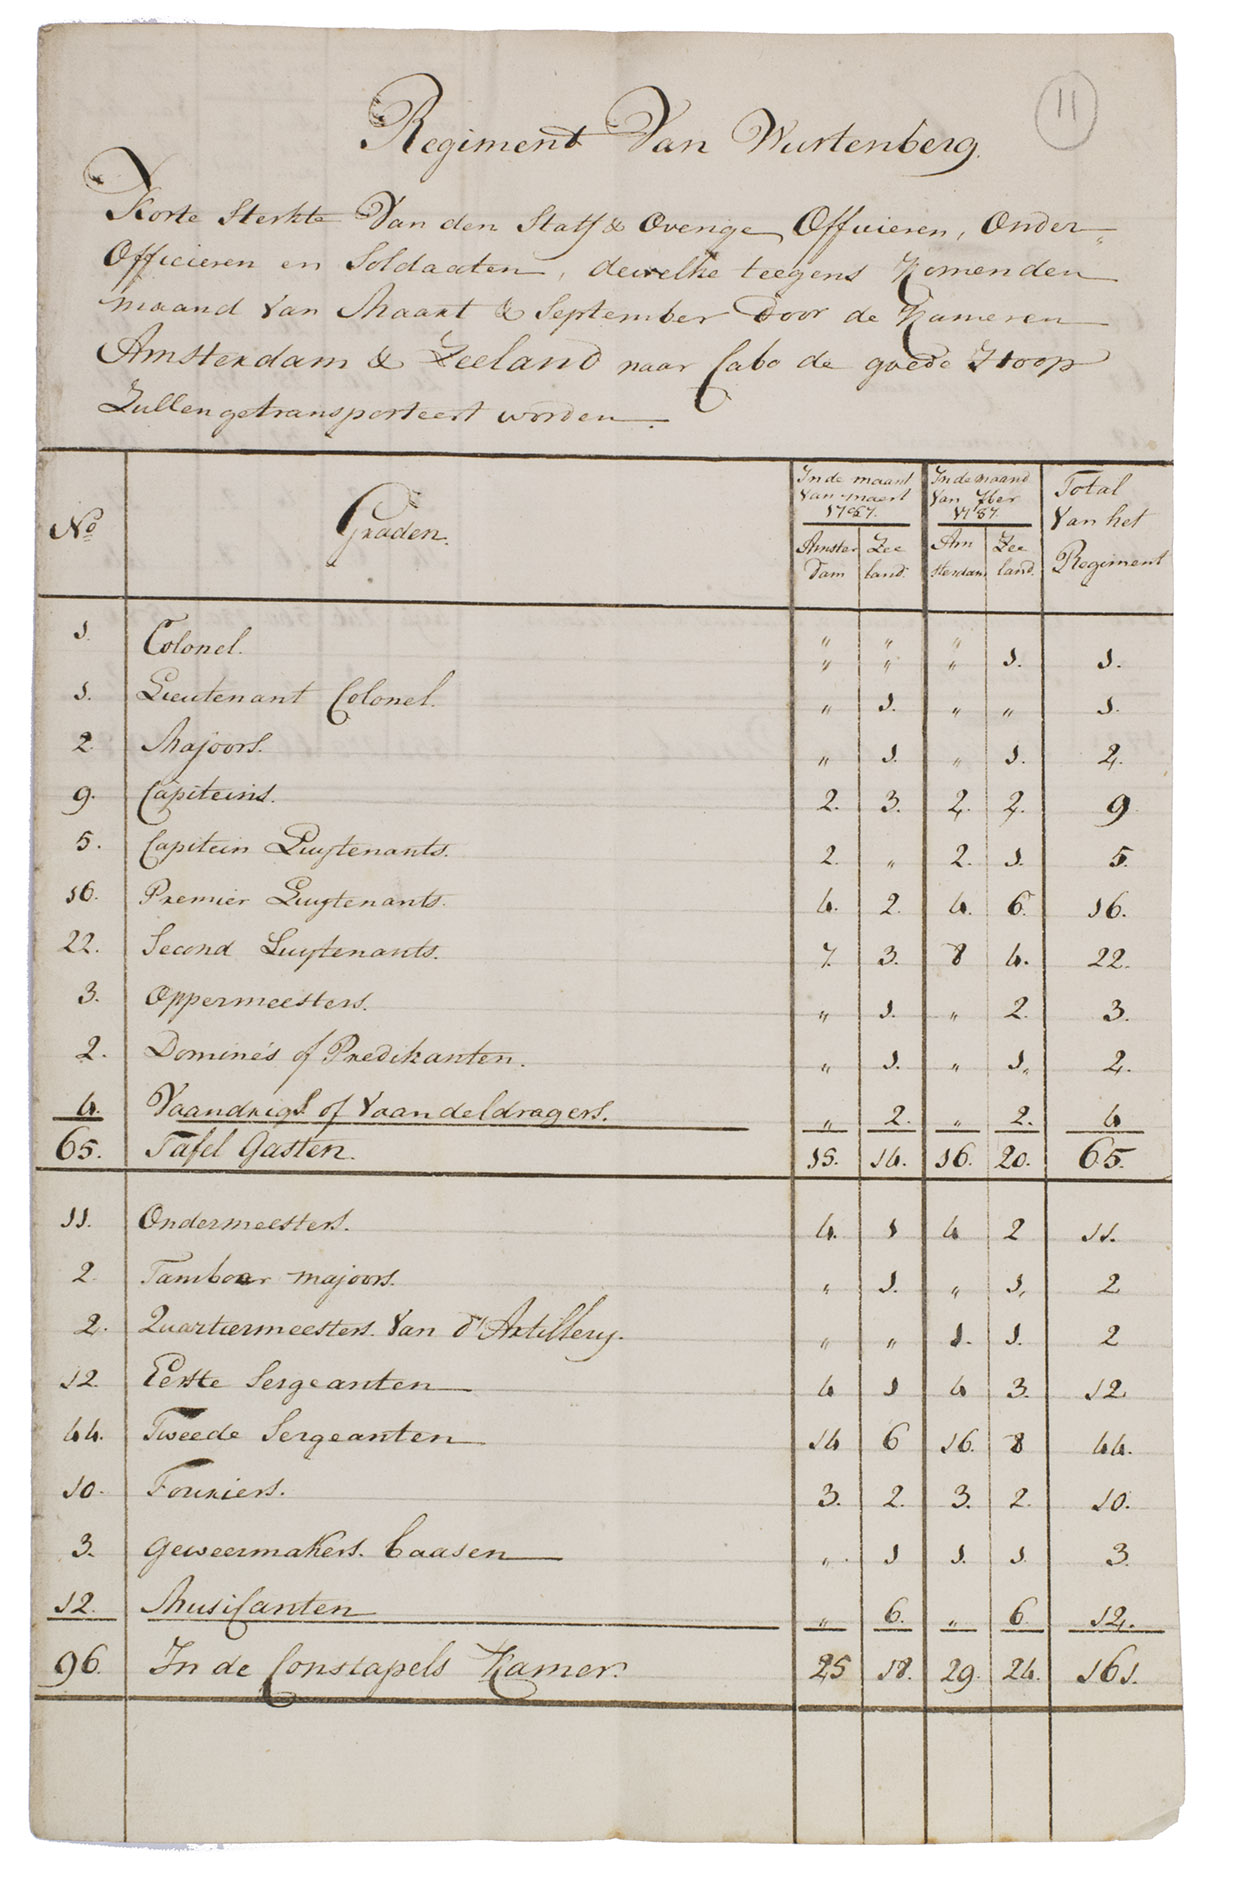 11
Regiment Van Wurtenberg.
Korte Sterkte Van den Staff & Overige Officieren, Onder„
Officieren en Soldaaten, dewelke teegens Komenden
maand Van Maart & September door de Kameren
Amsterdam & Zeeland naar Cabo de goede Hoop
Zullen getransporteert worden.
No | Graden. | In de maant Van maert 1787. | In de maand Van 7ber 1787. | Total Van het Regiment
Amster dam | Zee land. | Am sterdam | Zee land.
1. | Colonel. | „ | „ | „ | 1. | 1.
1. | Lieutenant Colonel. | „ | 1. | „ | „ | 1.
2. | Majoors. | „ | 1. | „ | 1. | 2.
9. | Capiteins. | 2. | 3. | 2. | 2. | 9
5. | Capitein Luytenants. | 2. | „ | 2. | 1. | 5.
16. | Premier Luytenants. | 4. | 2. | 4. | 6. | 16.
22. | Second Luytenants. | 7. | 3. | 8 | 4. | 22.
3. | Oppermeesters. | „ | 1. | „ | 2. | 3.
2. | Dominés of Predikanten. | „ | 1. | „ | 1. | 2.
4. | Vaandrigs of Vaandeldragers. | „ | 2. | „ | 2. | 4
65. | Tafel Gasten. | 15. | 14. | 16. | 20. | 65.
11. | Ondermeesters. | 4. | 1 | 4 | 2 | 11.
2. | Tamboer majoors. | „ | 1. | „ | 1. | 2
2. | Quartiermeesters. Van d'Artillery. | „ | „ | 1. | 1. | 2
12. | Eerste Sergeanten | 4 | 1 | 4 | 3. | 12.
44. | Tweede Sergeanten | 14 | 6 | 16. | 8 | 44.
10. | Fouriers. | 3. | 2. | 3. | 2. | 10.
3. | Geweermakers. baasen | „ | 1 | 1. | 1. | 3.
12. | Musicanten | „ | 6. | „ | 6. | 12.
96. | In de Constapels Kamer. | 25 | 18. | 29. | 24. | 161.